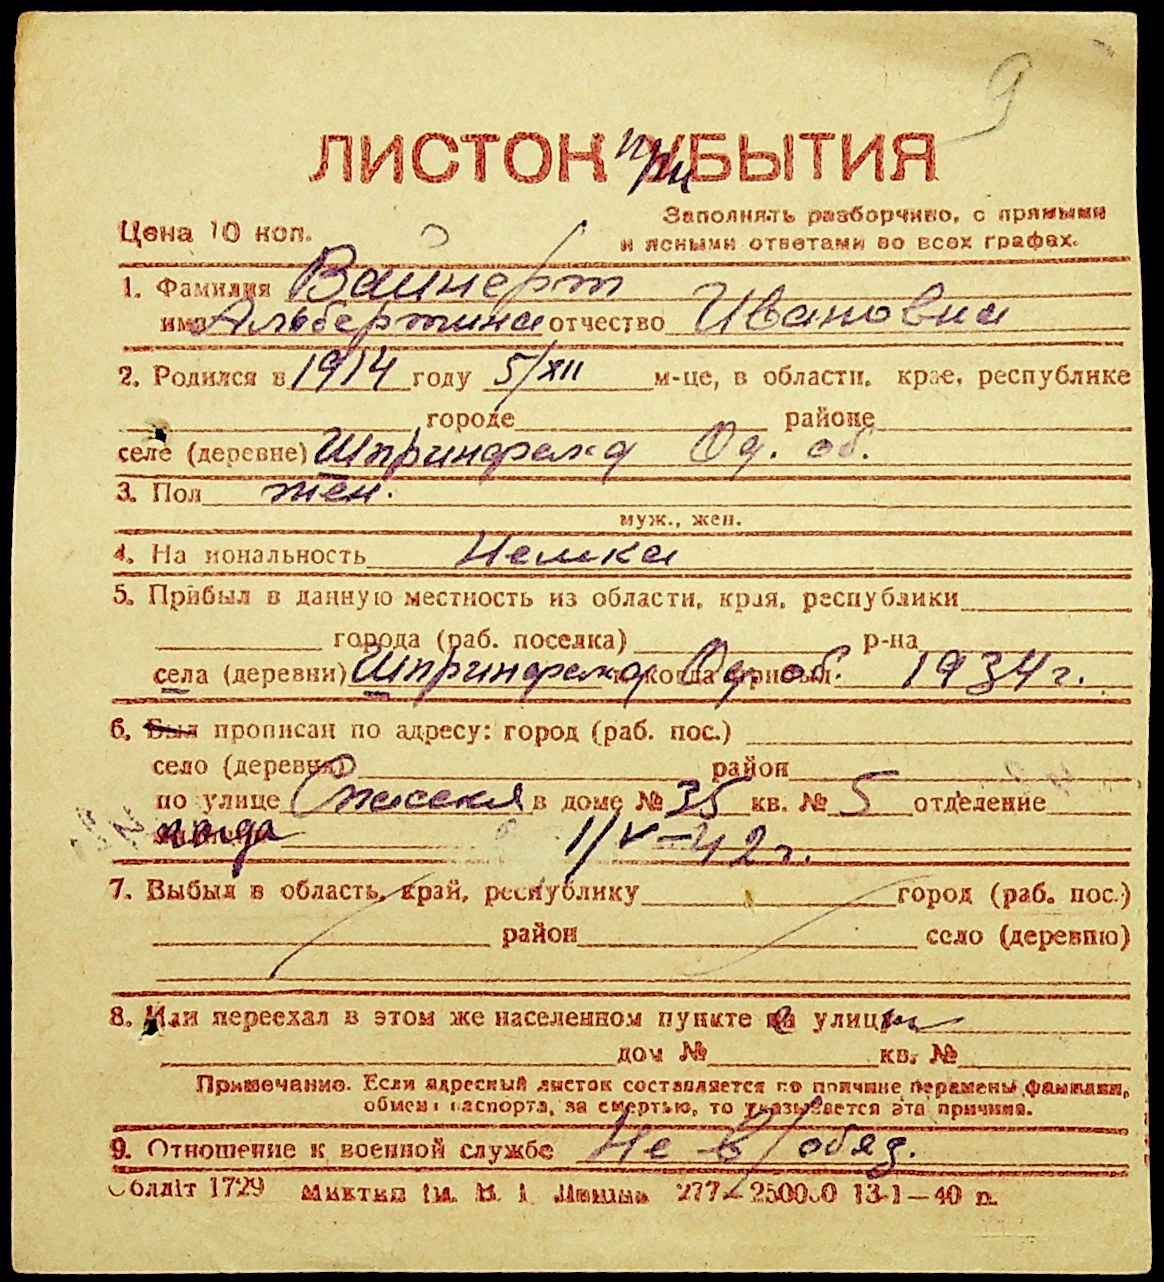 9
ЛИСТОК УБЫТИЯ
при
Заполнять разборчиво, с прямыми
Цена 10 коп.
и ясными ответами во всех графах.
1. Фамилия Вайнерт
имя Альбертина отчество Ивановна
2. Родился в 1914 году 5/XII м-це, в области, крае, республике
городе районе
селе (деревне) Шпринфельд Од. об.
3. Пол жен.
муж., жен.
4. На иональность Немка
5. Прибыл в данную местность из области, края, республики
города (раб. поселка) р-на
села (деревни) Шпринфельд Од. об. 1934 г.
6. Был прописан по адресу: город (раб. пос.)
село (деревня) район
по улице в доме № 35 кв. № 5 отделение
когда 1/V-42 г.
7. Выбыл в область, край, республику город (раб. пос.)
район село (деревню)
8. Или переехал в этом же населенном пункте на улицу
дом № кв. №
Примечание. Если адресный листок составляется по причине перемены фамилии,
обмена паспорта, за смертью, то указывается эта причина.
9. Отношение к военной службе Не в/обяз.
Обллiт 1729 277—250000 13-1—40 р.